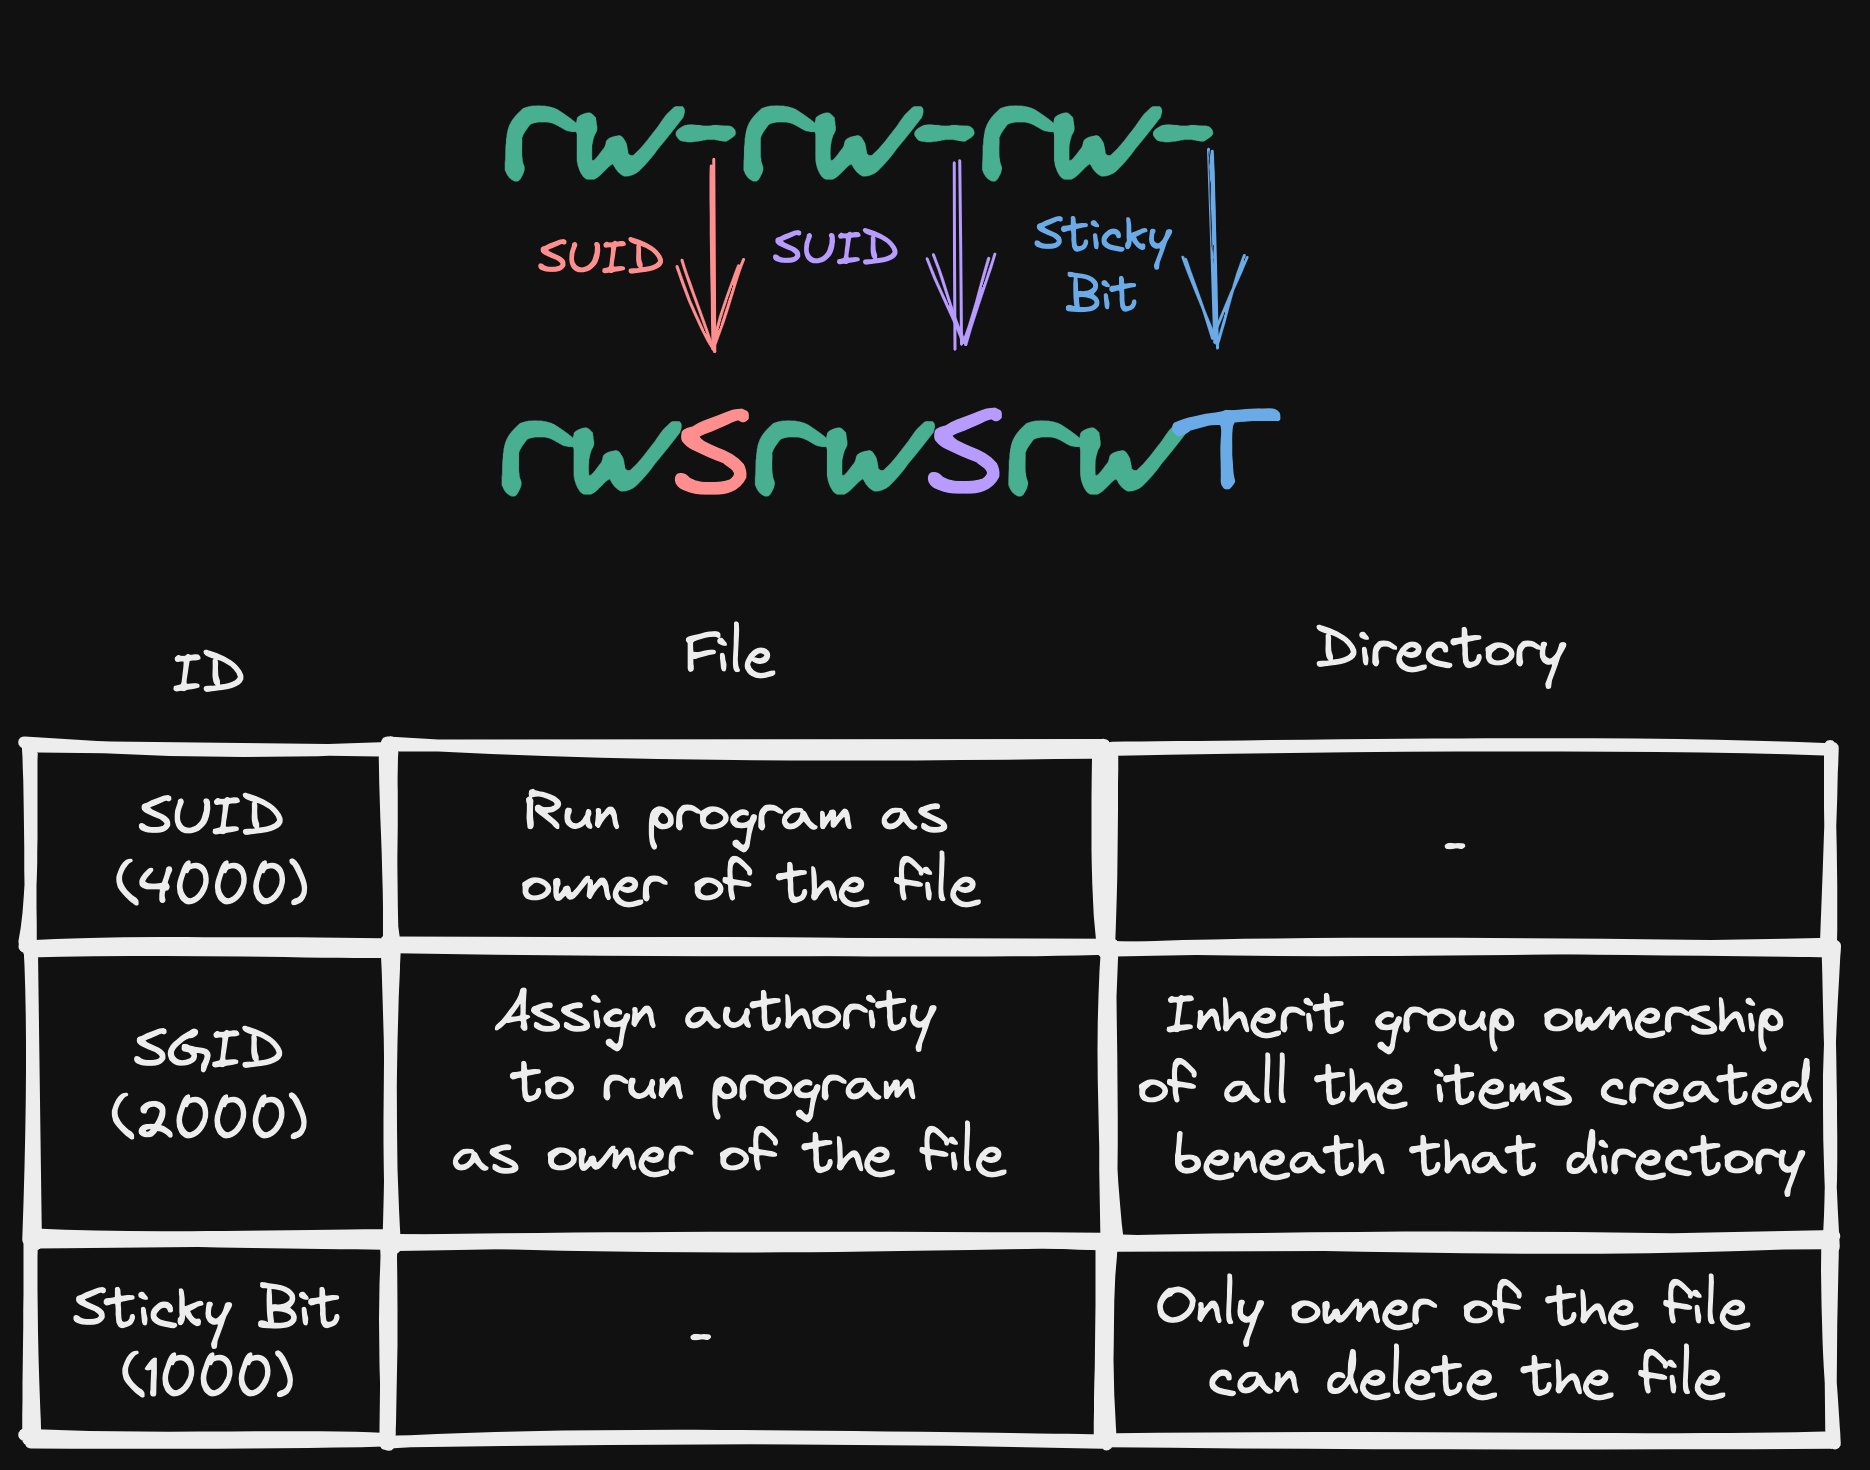 rw-rw-rw-
SUID
SUID
Sticky
Bit
rwSrwSrwT
ID
File
Directory
SUID
(4000)
Run program as
owner of the file
-
SGID
(2000)
Assign authority
to run program
as owner of the file
Inherit group ownership
of all the items created
beneath that directory
Sticky Bit
(1000)
-
Only owner of the file
can delete the file